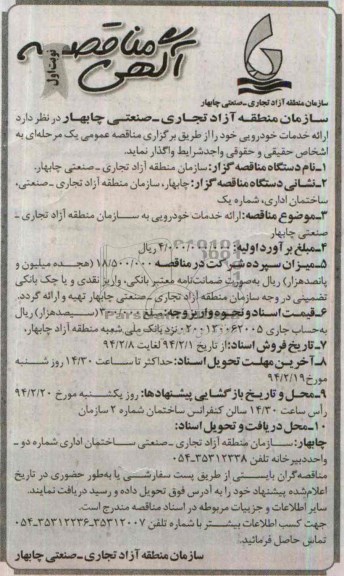 آگهی مناقصه
نوبت اول
سازمان منطقه آزاد تجاری -صنعتی چابهار
سازمان منطقـه آزاد تجـاری -صنعتـی چابهـار در نظر دارد
ارائه خدمات خودرویی خود را از طریق برگزاری مناقصه عمومی یک مرحله‌ای به
اشخاص حقیقی و حقوقی واجدشرایط واگذار نماید.
۱-نام دستگاه مناقصه گزار: سازمان منطقه آزاد تجاری -صنعتی چابهار.
۲-نشانی دستگاه مناقصه گزار: چابهار، سازمان منطقه آزاد تجاری -صنعتی،
ساختمان اداری، شماره یک
۳-موضوع مناقصه: ارائه خدمات خودرویی به سـازمان منطقه آزاد تجاری -
صنعتی چابهار
۴-مبلغ بر آورد اولیه: ریال
۵-میـزان سپـرده شـرکت در مناقصـه ۱۸/۵۰۰/۰۰۰ (هجـده میلیون و
پانصدهزار) ریال به‌صورت ضمانت‌نامه معتبر بانکی، واریز نقدی و یا چک بانکی
تضمینی در وجه سازمان منطقه آزاد تجاری -صنعتی چابهار تهیه و ارائه گردد.
۶-قیمت اسناد و نحـوه واریز وجه: مبلغ (سیصدهزار) ریال
به‌حساب جاری ۰۲۰۰۱۳۰۰۶۲۰۰۵ نزد بانک ملی شعبه منطقه آزاد چابهار،
۷-تاریخ فروش اسناد: از تاریخ ۹۴/۲/۱ لغایت ۹۴/۲/۸
۸-آخریـن مهلـت تحویـل اسنـاد: حداکثر تا ساعت ۱۴/۳۰ روز شـنبه
مورخ ۹۴/۲/۱۹
۹-محـل و تاریـخ بازگشایی پیشنهادها: روز یکشنبه مورخ ۹۴/۲/۲۰
رأس ساعت ۱۴/۳۰ سالن کنفرانس ساختمان شماره ۲ سازمان
۱۰-محل دریافت و تحویل اسناد:
چابهار: سـازمان منطقه آزاد تجاری -صنعتی ساختمان اداری شماره دو -
واحد دبیرخانه تلفن ۳۵۳۱۲۳۳۸-۰۵۴
مناقصه‌گران بایستی از طریق پست سفارشی یا به‌طور حضوری در تاریخ
اعلام‌شده پیشنهاد خود را به آدرس فوق تحویل داده و رسید دریافت نمایند.
سایر اطلاعات و جزییات مربوطه در اسناد مناقصه مندرج است.
جهت کسب اطلاعات بیشتـر با شماره تلفن ۳۵۳۱۲۰۰۷-۳۵۳۱۲۲۳۶-۰۵۴
تماس حاصل فرمائید.
سازمان منطقه آزاد تجاری -صنعتی چابهار